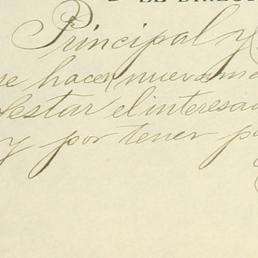 EL DIRECT
Principal y
se hacer nuevame
estar el interesad
y por tener pa